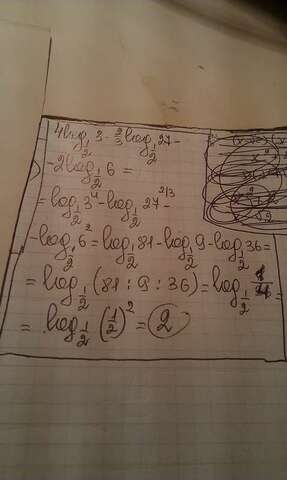 4log_{1/2} 3 - 2/3 log_{1/2} 27 -
- 2log_{1/2} 6 =
= log_{1/2} 3^4 - log_{1/2} 27^{2/3} -
- log_{1/2} 6^2 = log_{1/2} 81 - log_{1/2} 9 - log_{1/2} 36 =
= log_{1/2} (81 : 9 : 36) = log_{1/2} =
= log_{1/2} (1/2)^2 = 2